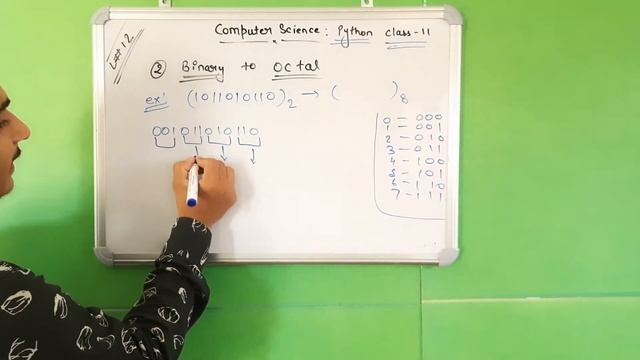 Lect 12
Computer Science: Python class-11
② Binary to Octal
ex! (1011010110)₂ → ( )₈
001011010110
0 = 000
1 = 001
2 - 010
3 - 011
4 - 100
5 - 101
6 - 110
7 - 111